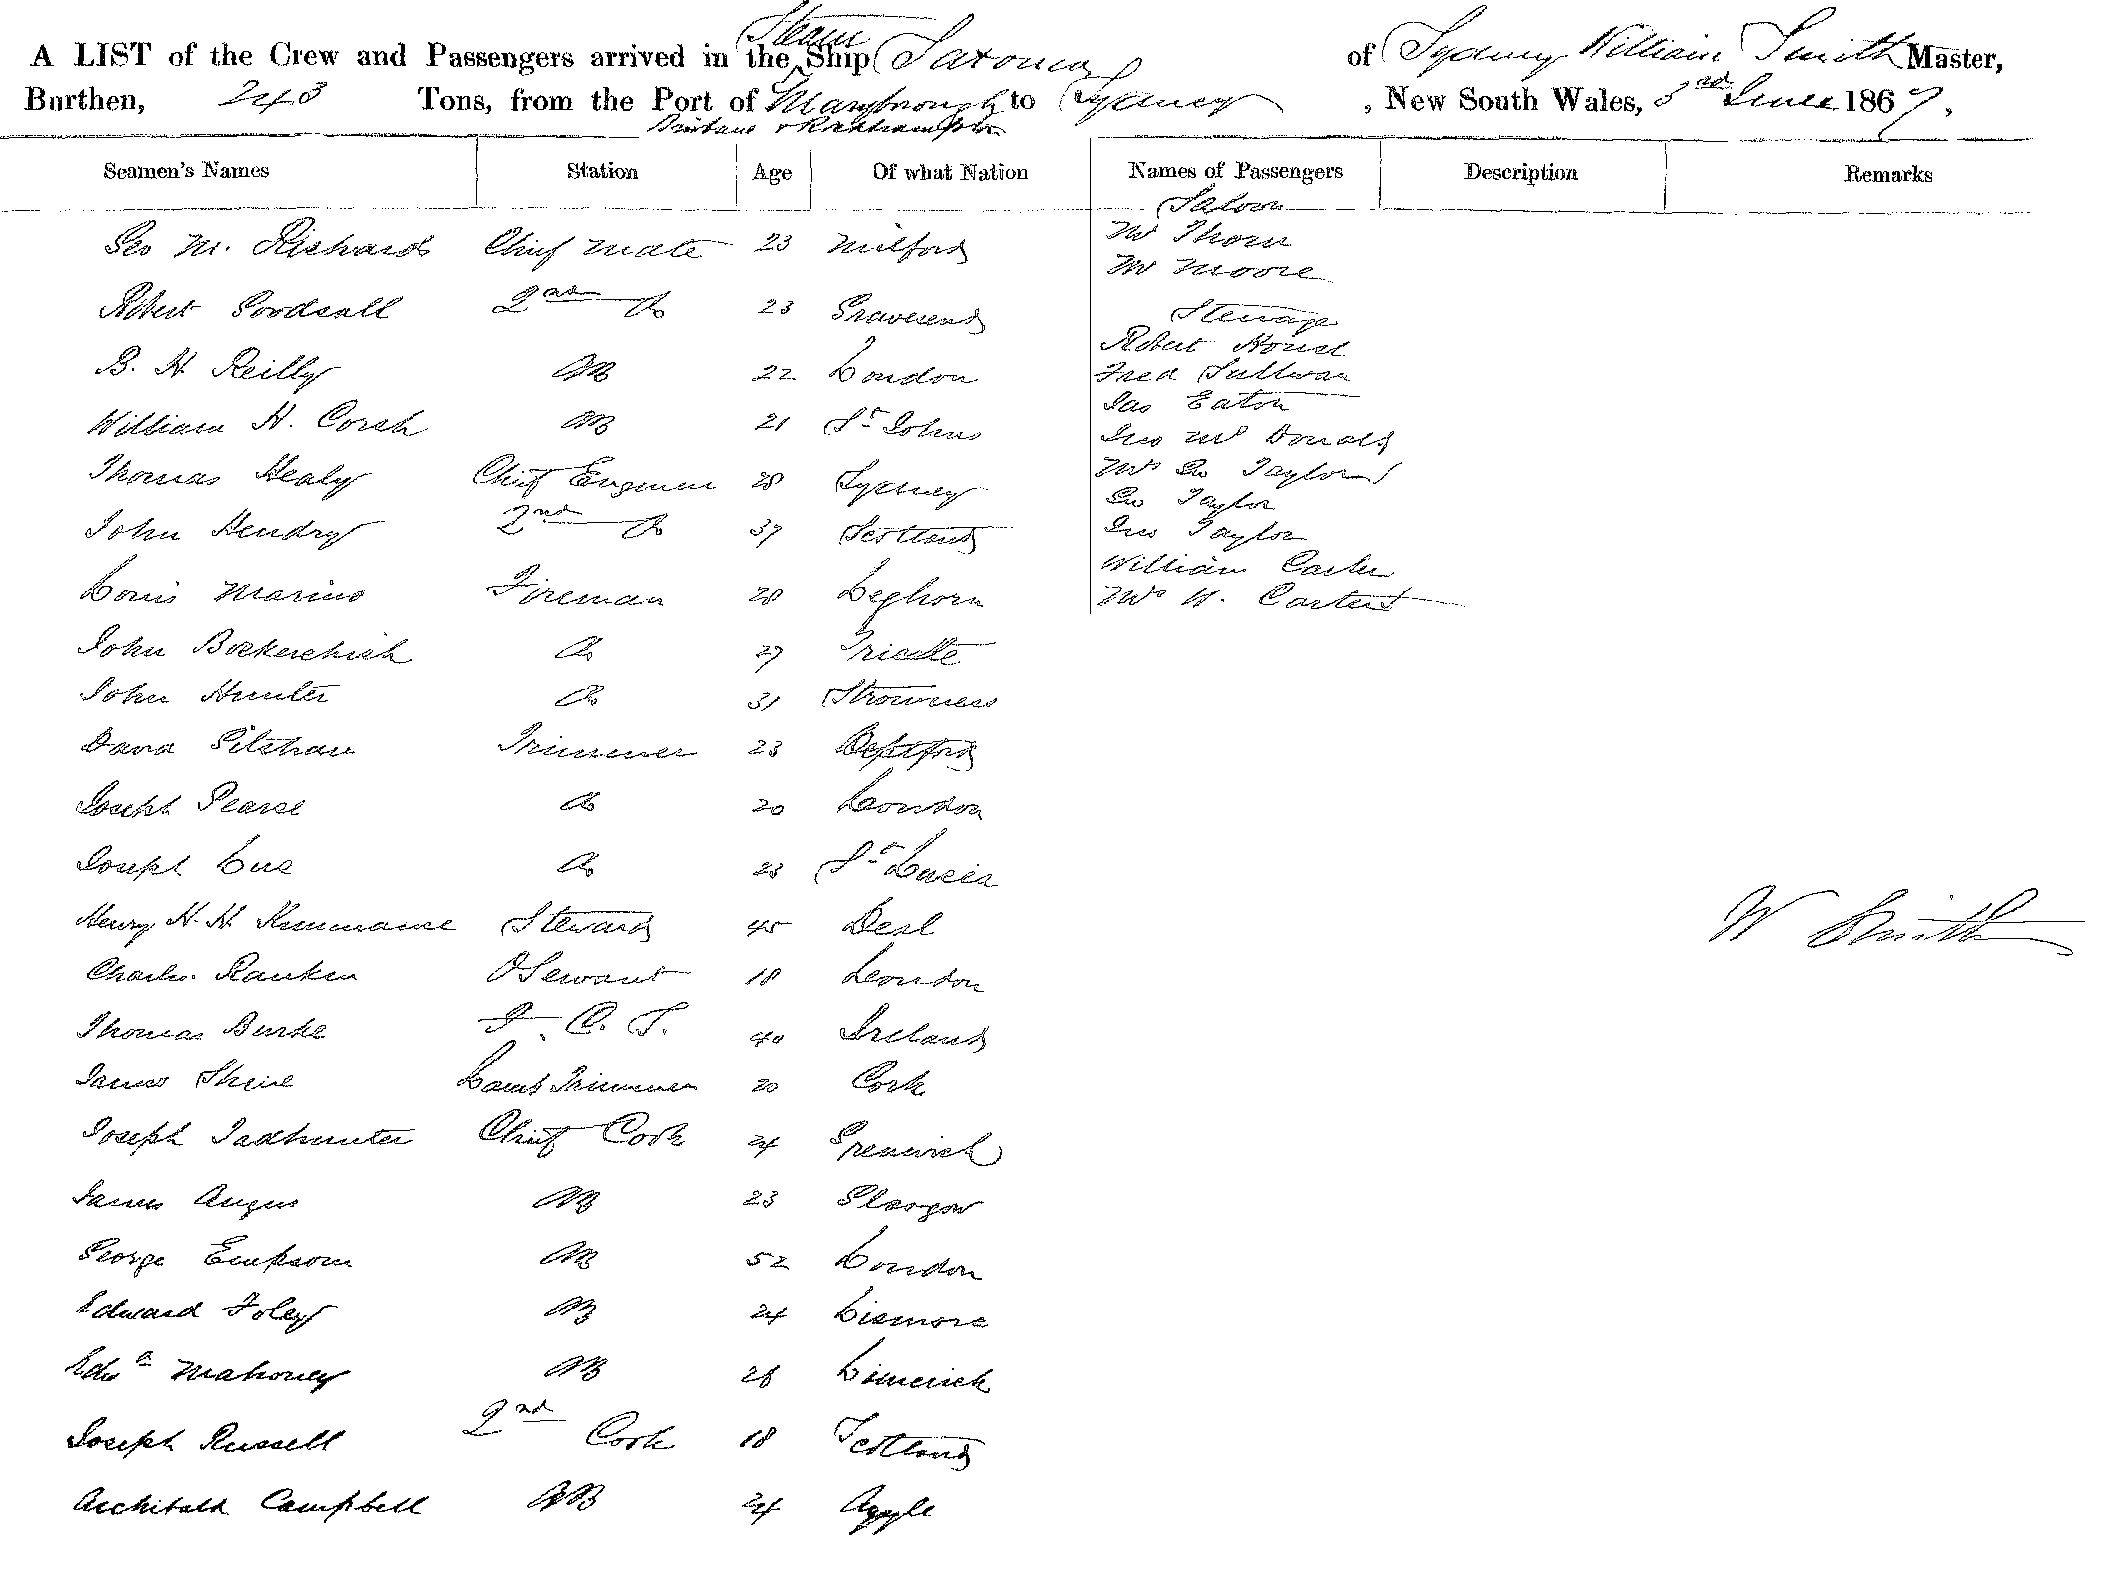 A LIST of the Crew and Passengers arrived in the Steam Ship Saxonia of Sydney William Smith Master,
Burthen, 243 Tons, from the Port of Maryborough to Sydney, New South Wales, 3rd June 1867.
Brisbane & Rockhampton
Seamen's Names Station Age Of what Nation Names of Passengers Description Remarks
Saloon
Geo M. Richards Chief Mate 23 Milford
Mr Thorn
Mr Moore
Robert Goodsall 2nd Do 23 Gravesend
Steerage
Robert House
B. H. Reilly AB 22 London
Fred Sullivan
Jas Eaton
William H. Corsh AB 21 St Johns
Jno Mc Donald
Thomas Healy Chief Engineer 28 Sydney
Mrs Geo Taylor
Geo Taylor
John Hendry 2nd Do 37 Scotland
Jno Taylor
William Carter
Louis Marino Fireman 28 Leghorn
Mrs W. Carter
John Do 27 Trieste
John Hunter Do 31 Stromness
David Gilshaw Trimmer 23 Deptford
Joseph Pearse Do 20 London
Joseph Luce Do 23 St Lucia
Henry H. H. Steward 45 Deal
W Smith
Charles Ranken O Servant 18 London
Thomas Burke F. C. S. 40 Ireland
James Sheile Lamp Trimmer 20 Cork
Joseph Tadhunter Chief Cook 24 Grenwich
James Angus AB 23 Glasgow
George Empson AB 52 London
Edward Foley AB 24 Lismore
Edwd Mahoney AB 26 Limerick
Joseph Russell 2nd Cook 18 Scotland
Archibald Campbell AB 24 Argyle